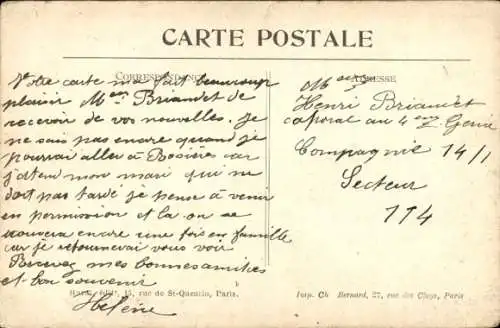 CARTE POSTALE
CORRESPONDANCE
Votre carte ma fait beaucoup
plaisir Mr Briandet de
recevoir de vos nouvelles. Je
ne sais pas encore quand je
pourrai aller à Rosières car
j'atend mon mari qui ne
doit pas tardé je pense à venir
en permission et la on se
trouvera encore une fois en famille
car je retournerai vous voir
Recevez mes bonnes amitiés
et bon souvenir
Hélène
édit. 15, rue de St-Quentin, Paris.
ADRESSE
Henri Briandet
caporal au 4 Génie
Compagnie 14/1
Secteur
114
Imp. Ch Bernard, 27, rue des Cloys, Paris